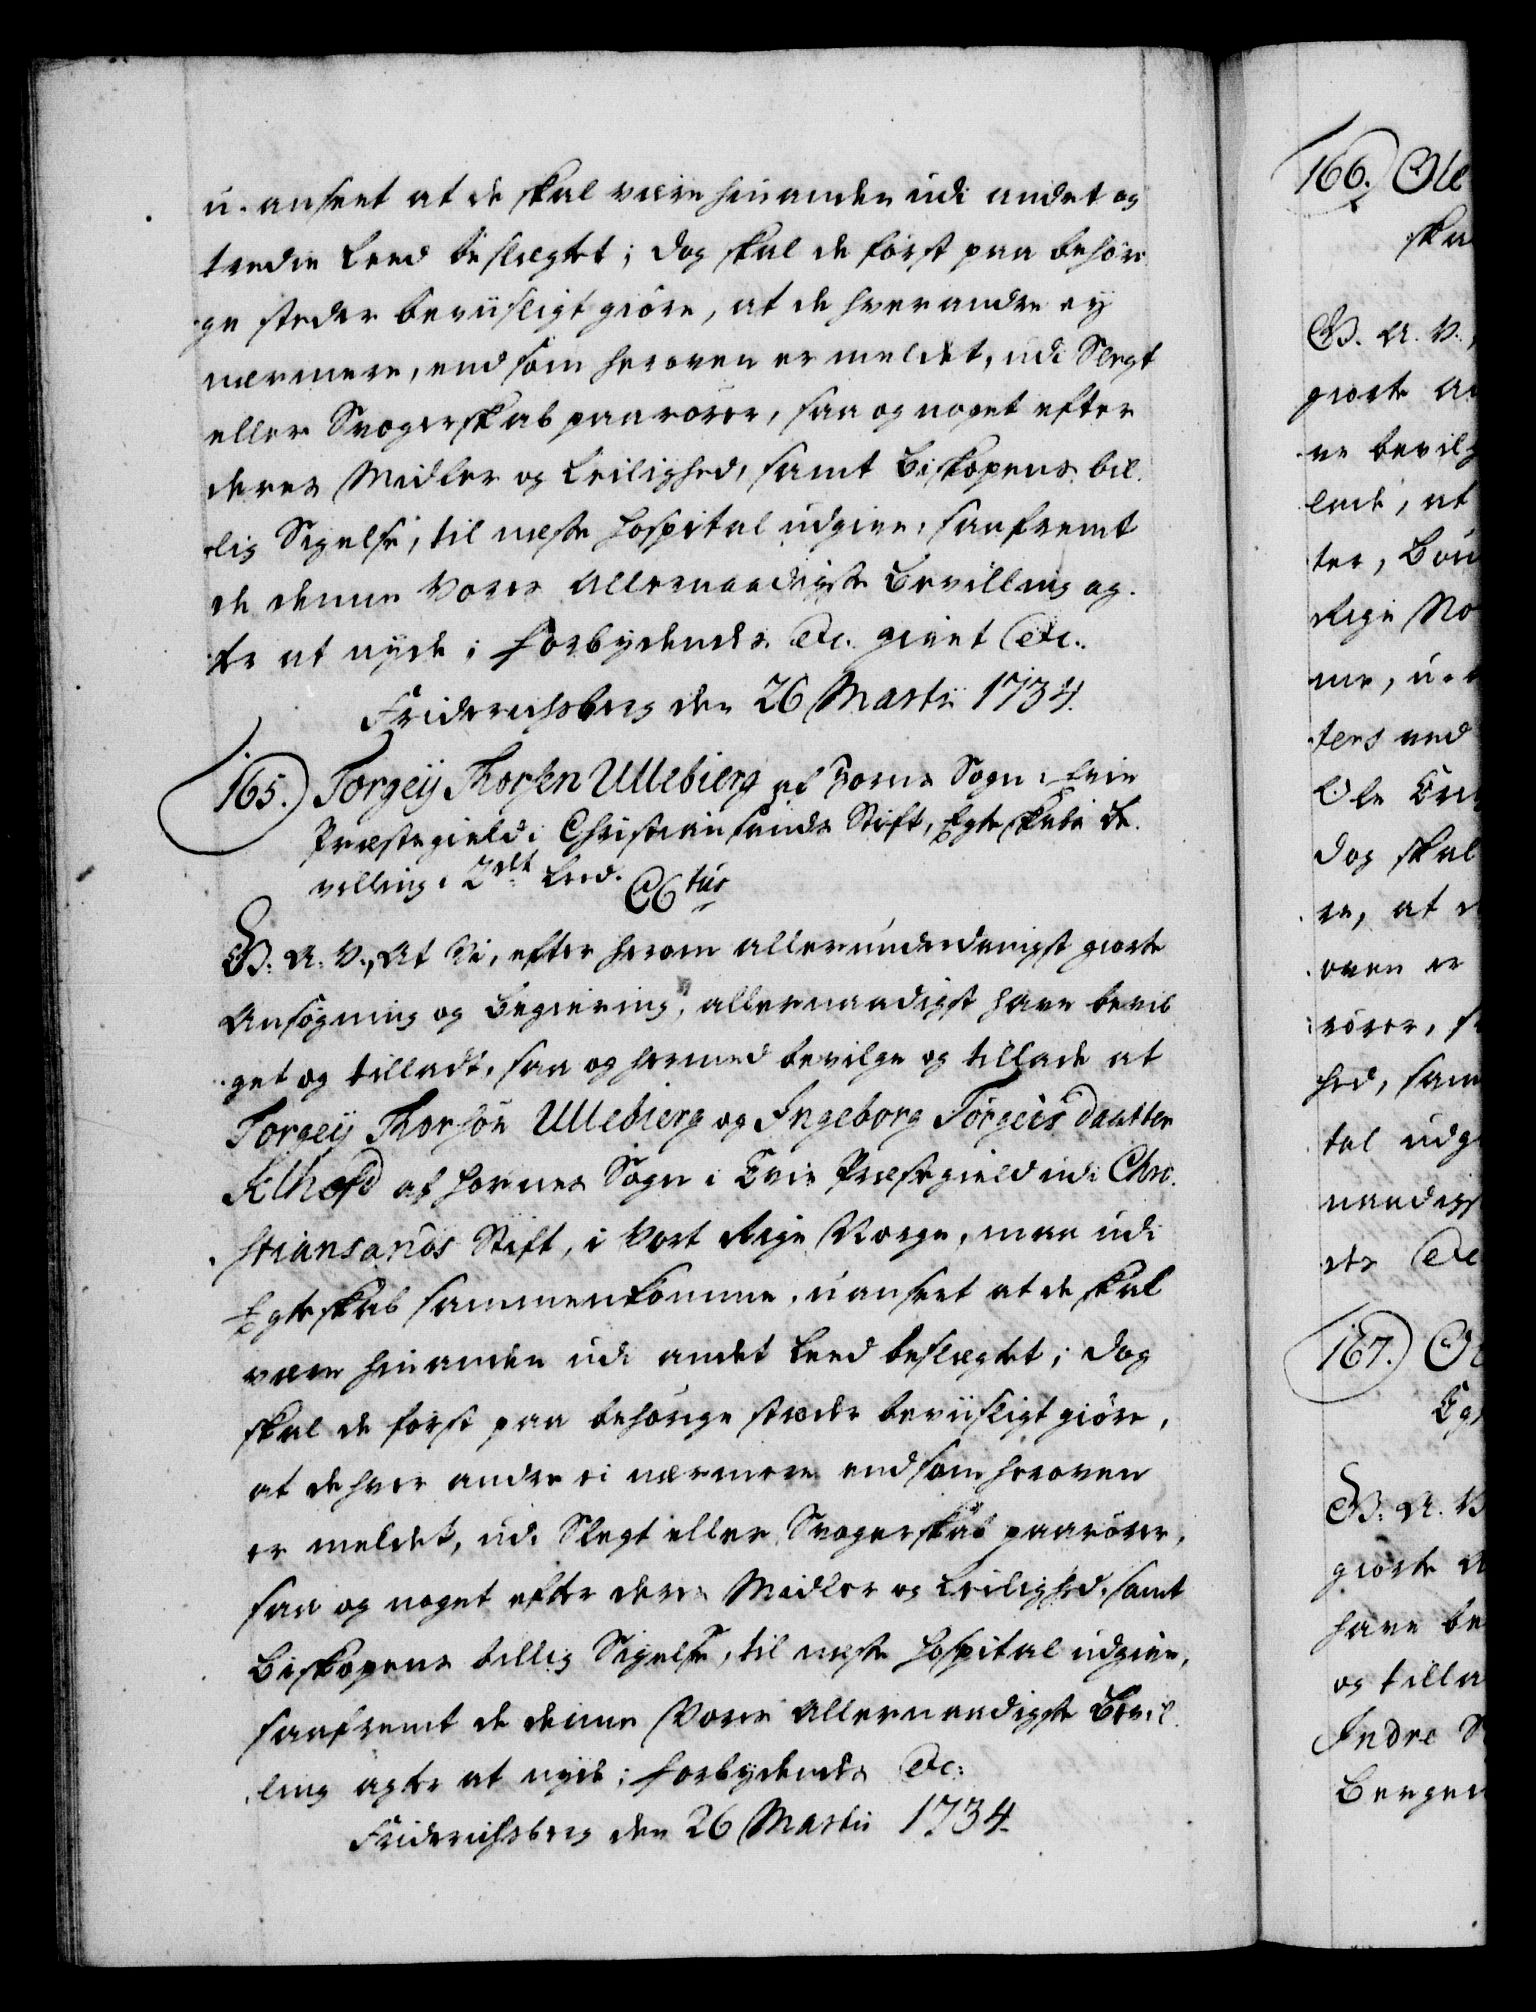 u-anseet at de skal være hinanden udi andet og
tredie Leed beslægtet; dog skal de først paa behøri-
ge steder beviisligt giøre, at de hverandre ey
nærmere, end som heroven er meldet, udi Slegt
eller Svogerskab paarører, saa og noget efter
deres Midler og Leilighed, samt Biskopens bil-
lig Sigelse, til neste Hospital udgive, saafremt
de denne Vores Allernaadigste Bevilling ag-
te at nyde; Forbydendes etc. givet etc.
Friderichsberg den 26 Martii 1734.
165. Torgeÿ Thorsen Ullebierg af Hornes Sogn i Evie
Præstegield i Christiansands Stift, Egteskabs Be-
villing i 2det Leed.
G. A. V., At Vi, efter herom allerunderdanigst giorte
Ansøgning og Begiering, allernaadigst have bevil-
get og tilladt, saa og hermed bevilge og tillade at
Torgeÿ Thorsøn Ullebierg og Ingeborg Torgeis daatter
af Hornes Sogn i Evie Præstegield udi Chri-
stiansands Stift, i Vort Rige Norge, maa udi
Egteskab sammenkomme, uanseet at de skal
være hinanden udi andet Leed beslægtet; dog
skal de først paa behørige steder beviisligt giøre,
at de hver andre ei nærmere end som heroven
er meldet, udi Slegt eller Svogerskab paarører,
saa og noget efter deres Midler og Leilighed, samt
Biskopens billig Sigelse, til neste Hospital udgive,
saafremt de denne Vores Allernaadigste Bevil-
ling agte at nyde; Forbydendes etc:
Friderichsberg den 26 Martii 1734.
166. Ole
ska
G. A. V.,
giorte An
ve bevilg
lade, at
ter,
Rige No
me, u-a
ters
Ole
dog skal
re, at d
oven er
rører, s
hed, sam
tal udg
naadigst
des etc
167.
Eg
G. A. V
giorte A
have be
og tilla
Indre S
Bergen